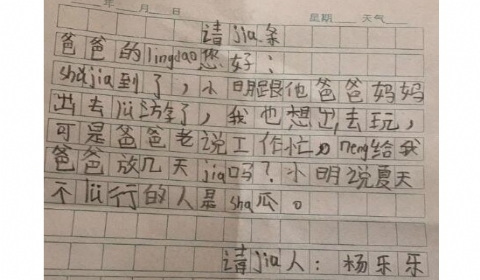 年 月 日 星期 天气
请jia条
爸爸的lingdao您好：
shujia到了，小明跟他爸爸妈妈
出去lü了，我也想出去玩，
可是爸爸老说工作忙，neng给我
爸爸放几天jia吗？小明说夏天
不lü行的人是sha瓜。
请jia人：杨乐乐